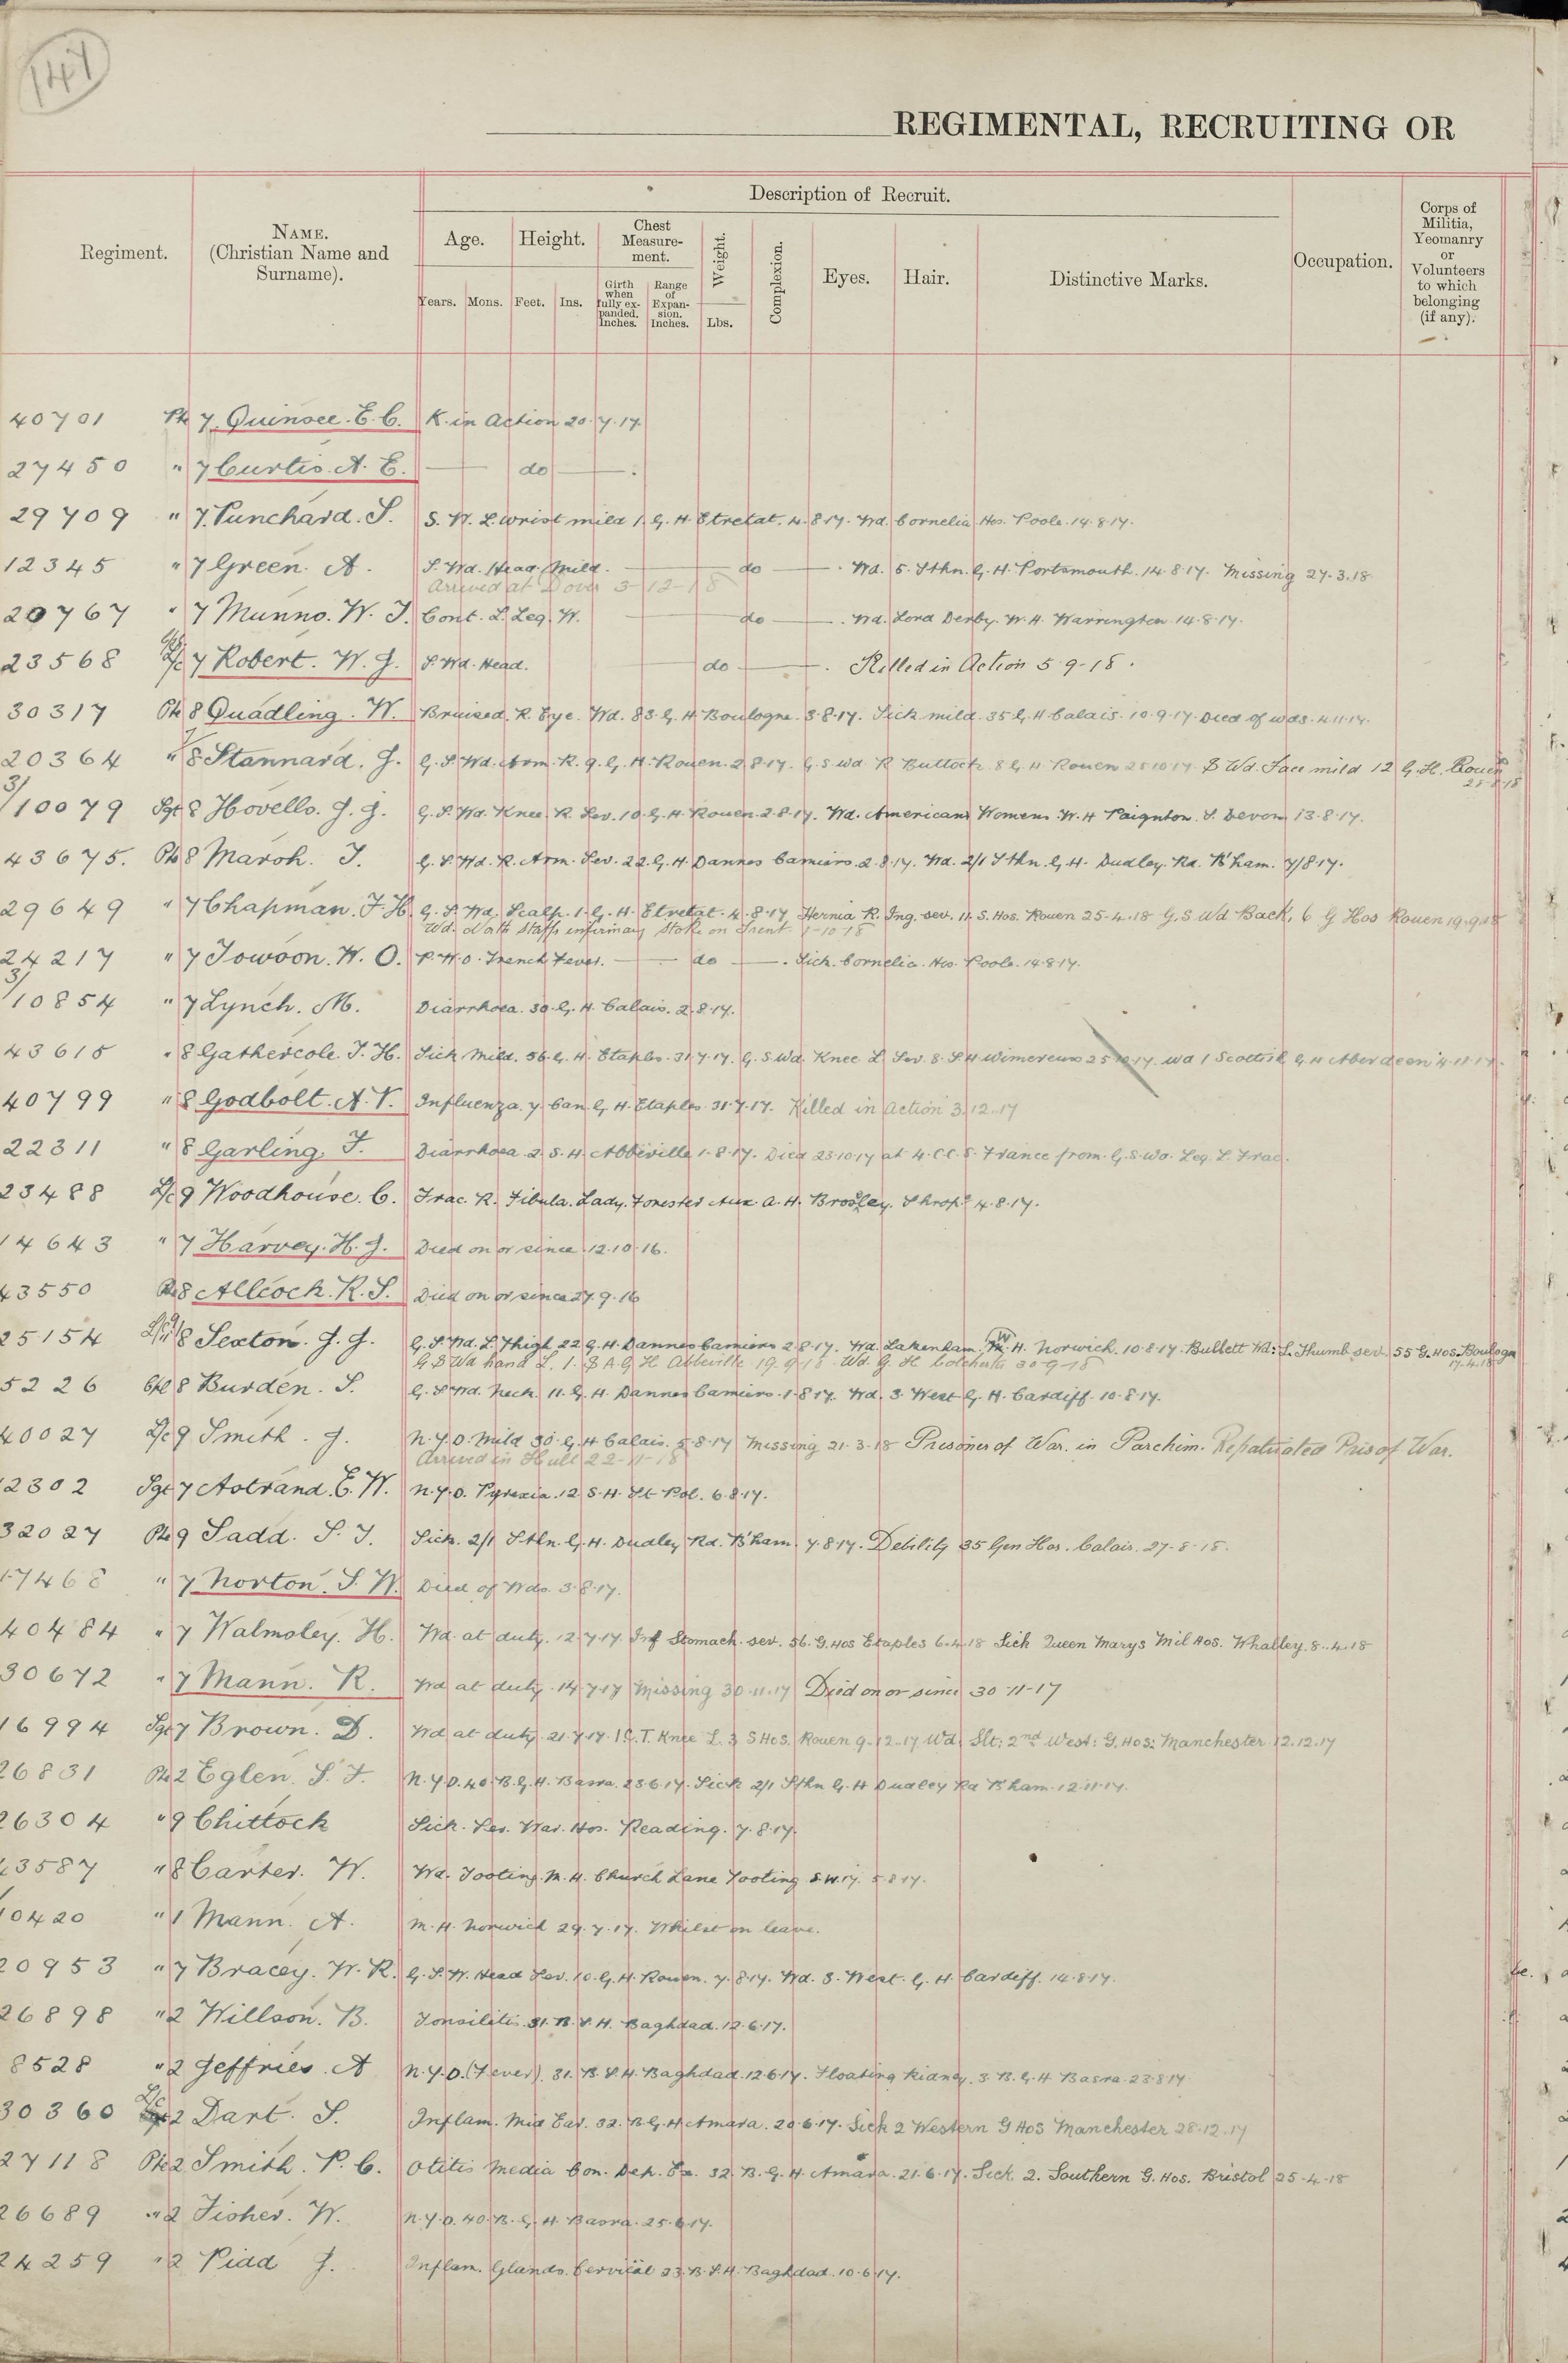 147
REGIMENTAL, RECRUITING OR
Regiment.
NAME.
(Christian Name and
Surname).
Description of Recruit.
Age.
Years. Mons.
Height.
Feet. Ins.
Chest
Measure-
ment.
Girth
when
fully ex-
panded.
Inches.
Range
of
Expan-
sion.
Inches.
Weight.
Lbs.
Complexion.
Eyes.
Hair.
Distinctive Marks.
Occupation.
Corps of
Militia,
Yeomanry
or
Volunteers
to which
belonging
(if any).
40701 Pte 7 Quinsee. E. C. K. in Action 20.7.17.
27450 " 7 Curtis. A. E. do
29709 " 7 Punchard. S. S. W. L. wrist mild 1. G. H Etretat. 4.8.17. Wd. Cornelia Hos. Poole. 14.8.17.
12345 " 7 Green A. S. Wd. Head. Mild. do Wd. 5. Sthn. G. H. Portsmouth. 14.8.17. Missing 27.3.18
Arrived at Dover 3-12-18
20767 " 7 Munns. W. J. Cont. L. Leg. W. do Wd. Lord Derby. W. H. Warrington 14.8.17.
23568 L/c 7 Robert. W. J. S. Wd. Head. do Killed in Action 5-9-18.
30317 Pte 8 Quadling. W. Bruised. R. Eye. Wd. 83. G. H Boulogne. 3.8.17. Sick mild. 35 G. H Calais. 10.9.17. Died of wds. 4.11.17.
20364 " 8 Stannard. J. G. S. Wd. Arm. R. 9. G. H. Rouen. 2.8.17. G. S Wd R Buttock 8 G. H Rouen 25.10.17 S Wd. Face mild 12 G. H. Rouen
25-8-18
3/10079 Sgt 8 Hovells. J. J. G. S. Wd. Knee. R. Sev. 10. G. H. Rouen. 2.8.17. Wd. American Womens. W. H Paignton. S. Devon 13.8.17.
43675. Pte 8 Marsh. J. G. S. Wd. R. Arm. Sev. 22. G. H. Dannes Camiers. 2.8.17. Wd. 2/1 Sthn. G. H. Dudley. Rd. B'ham. 7/8.17.
29649 " 7 Chapman. F. H. G. S. Wd. Scalp. 1. G. H. Etretat. 4.8.17 Hernia R. Ing. sev. 11. S. Hos. Rouen 25-4-18 G. S Wd Back, 6 G Hos Rouen 19.9.18
Wd. North Staffs infirmary Stoke on Trent 1-10-18
24217 " 7 Towson. W. O. P. U. O. Trench Fever. do Sick. Cornelia. Hos. Poole. 14.8.17.
3/10854 " 7 Lynch. M. Diarrhoea. 30. G. H. Calais. 2.8.17.
43615 " 8 Gathercole. J. H. Sick Mild. 56. G. H. Etaples. 31.7.17. G. S Wd. Knee L Sev. 8. S H Wimereux 25.10.17. wd 1 Scottish G H Aberdeen 4.11.17.
40799 " 8 Godbolt. A. V. Influenza. 7 Can. G. H. Etaples. 31.7.17. Killed in Action 3.12.17
22311 " 8 Garling. F. Diarrhoea. 2. S. H. Abbeville 1.8.17. Died 23.10.17 at 4. C. C. S. France from. G. S. Wd. Leg. L. Frac.
23488 L/c 9 Woodhouse. C. Frac. R. Fibula. Lady. Forester Aux. A. H. Broseley. Shrops 4.8.17.
14643 " 7 Harvey. H. J. Died on or since 12.10.16.
43550 Pte 8 Allcock. R. S. Died on or since 27.9.16
25154 8 Sexton. J. J. G. S. Wd. L. Thigh 22 G. H. Dannes Camiers 2.8.17. Wd. Lakenham. W. H. Norwich. 10.8.17. Bullett Wd: L. Thumb sev. 55 G. Hos. Boulogne
17.4.18
G S Wd hand L. 1. S A G H Abbeville 19.9.18 Wd. G. H Colchester 30-9-18
5226 Cpl 8 Burden. S. G. S. Wd. Neck. 11. G. H. Dannes Camiers. 1.8.17. Wd. 3. West G. H. Cardiff. 10.8.17.
40027 L/c 9 Smith. J. N. Y. D. Mild 30. G. H Calais. 5.8.17 Missing 21.3.18 Prisoner of War. in Parchim. Repatriated Pris of War.
Arrived in Hull 22-11-18
12302 Sgt 7 Astrand. E. W. N. Y. D. Pyrexia. 12. S. H. St Pol. 6.8.17.
32027 Pte 9 Sadd. S. J. Sick. 2/1 Sthn. G. H. Dudley Rd. B'ham. 7.8.17. Debility 35 Gen Hos. Calais. 27-8-18.
17468 " 7 Norton. S. W. Died of Wds. 3.8.17.
40484 " 7 Walmsley. H. Wd. at duty. 12.7.17 Inf Stomach. sev. 56. G. Hos Etaples 6.4.18 Sick Queen Marys Mil Hos. Whalley. 8.4.18
30672 " 7 Mann. R. Wd at duty. 14.7.17 Missing 30.11.17 Died on or since 30-11-17
16994 Sgt 7 Brown. D. Wd at duty. 21.7.17. I. C. T. Knee L. 3 S Hos. Rouen 9.12.17 Wd: Slt: 2nd West: G. Hos: Manchester 12.12.17
26831 Pte 2 Eglen. S. F. N. Y. D. 40. B. G. H. Basra. 23.6.17. Sick 2/1 Sthn G. H Dudley Rd B'ham. 12.11.17.
26304 " 9 Chittock Sick. Res. War. Hos. Reading. 7.8.17.
43587 " 8 Carter. W. Wd. Tooting. M. H. Church Lane Tooting S. W. 17. 5.8.17.
10420 " 1 Mann. A. M. H. Norwich 29.7.17. Whilst on leave.
20953 " 7 Bracey. W. R. G. S. W. Head Sev. 10. G. H. Rouen. 7.8.17. Wd. 3. West. G. H. Cardiff. 14.8.17.
26898 " 2 Willson. B. Tonsilitis. 31. B. S. H. Baghdad. 12.6.17.
8528 " 2 Jeffries. A N. Y. D. (Fever). 31. B. S. H. Baghdad. 12.6.17. Floating Kidney. 3. B. G. H Basra. 23.8.17
30360 L/c 2 Dart. S. Inflam. Mid Ear. 32. B. G. H Amara. 20.6.17. Sick 2 Western G Hos Manchester 28.12.17
27118 Pte 2 Smith. P. C. Otitis Media Con. Dep. Ex. 32. B. G. H. Amara. 21.6.17. Sick. 2. Southern G. Hos. Bristol 25-4-18
26689 " 2 Fisher. W. N. Y. D. 40. B. G. H. Basra. 25.6.17.
24259 " 2 Pidd J. Inflam. Glands. Cervical 23. B. S. H. Baghdad. 10.6.17.